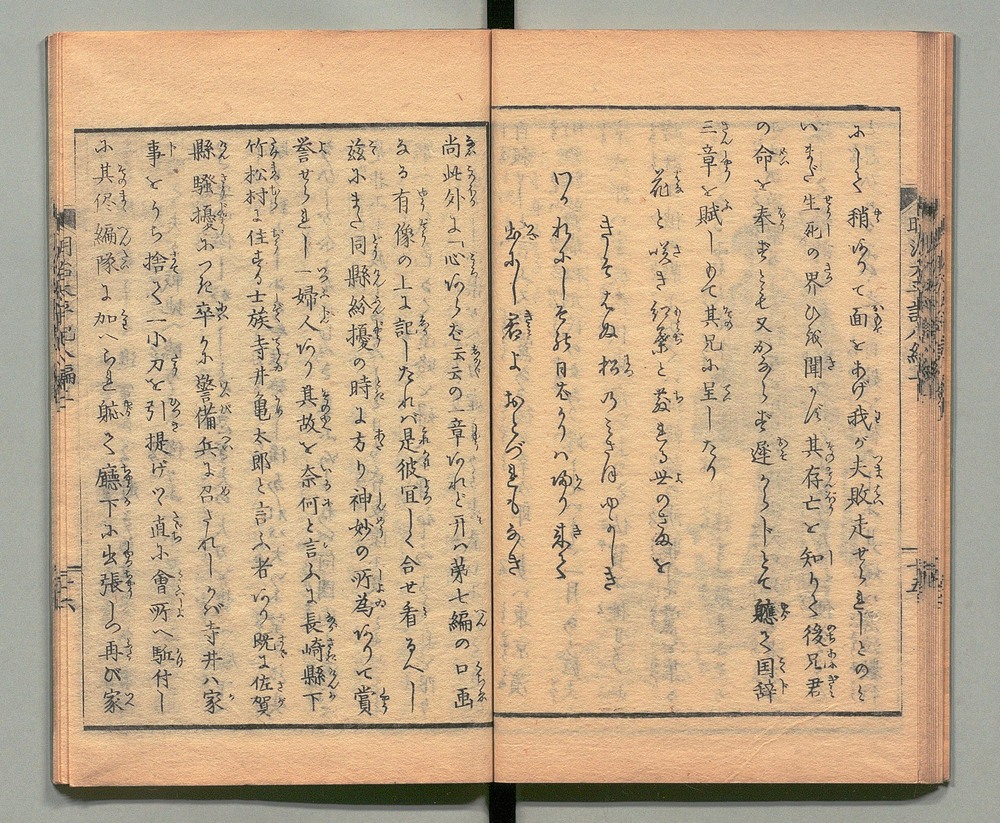 にして稍ありて面をあげ我が夫敗走せられしとのミ
いまだ生死の界ひを聞かず其存亡を知りて後兄君
の命を奉ずとも又かならず遅からじとて軈て国辞
三章を賦しもて其兄に呈したり
花と咲き紅葉と散れる世のさまを
きそはぬ松のミさほゆかしき
わかれにし其日ばかりハ帰り来て
出にし君よおとづれもなき
尚此外に「心あらむ云云の一章あれど开ハ第七編の口画
なる有像の上に記したれバ是彼宜しく合せ看るべし
茲にまた同縣紛擾の時に方り神妙の所為ありて賞
誉せられし一婦人あり其故を奈何と言ふに長崎縣下
竹松村に住する士族寺井亀太郎と言ふ者あり既に佐賀
縣騒擾につき卒かに警備兵に召されしかバ寺井ハ家
事をうち捨て一小刀を引提げツヽ直に會所へ駈付し
に其侭編隊に加へられ軈て廳下に出張しつ再び家